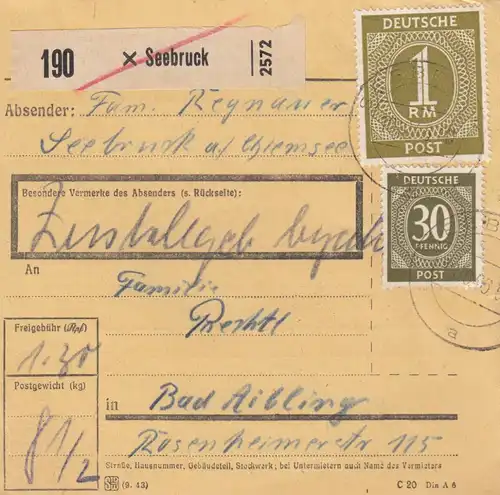 190 × Seebruck 2572
DEUTSCHE
1
RM
POST
Absender: Fam. Regnauer
Seebruck a/Chiemsee
DEUTSCHE
30
PFENNIG
POST
Besondere Vermerke des Absenders (s. Rückseite):
Zustellgeb
An
Familie
Freigebühr (Rpf)
Rechtl
1.30
Postgewicht (kg)
in Bad Aibling
8 1/2
Rosenheimerstr 115
Straße, Hausnummer, Gebäudeteil, Stockwerk; bei Untermietern auch Name des Vermieters
(9. 43)
C 20 Din A 6
a